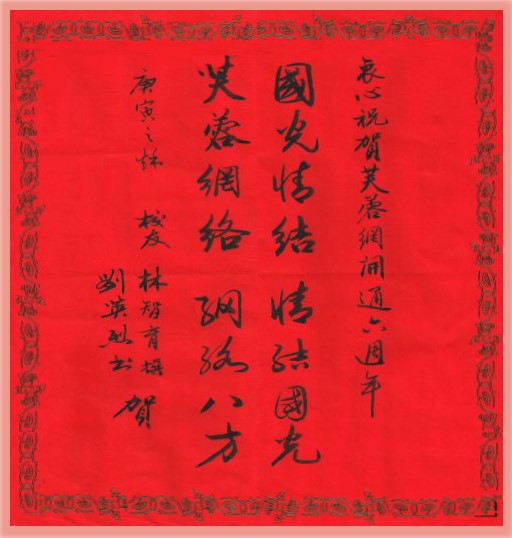 衷心祝賀芙蓉網開通六週年
國光情結 情結國光
芙蓉網絡 網絡八方
庚寅之秋 校友 林智育撰
劉英烈书 賀